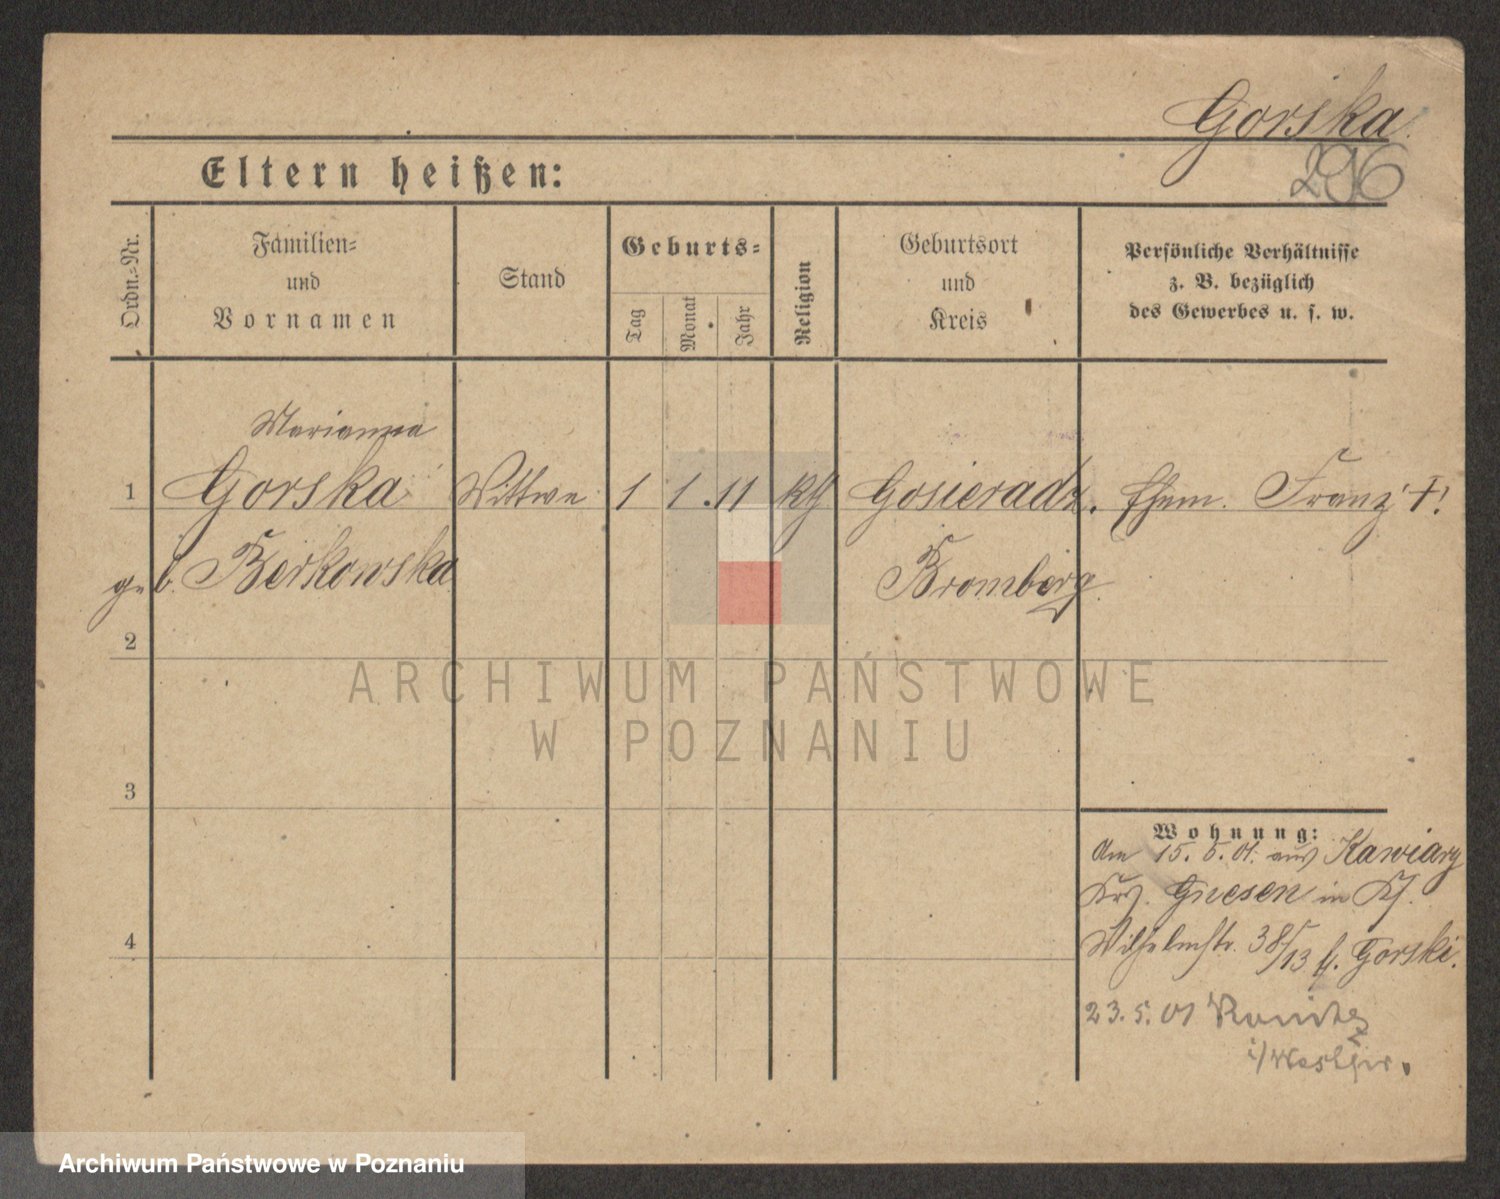 Gorska.
296
Eltern heißen:
Ordn.-Nr.
Familien-
und
Vornamen
Stand
Geburts-
Tag
Monat
Jahr
Religion
Geburtsort
und
Kreis
Persönliche Verhältnisse
z. B. bezüglich
des Gewerbes u. s. w.
Marianna
1 Gorska Wittwe 1 1. 11 kth Gosieradz. Ehem. Franz †!
geb. Berkowska Bromberg.
2
ARCHIWUM PAŃSTWOWE
W POZNANIU
3
Wohnung:
Am 15. 5. 01. aus Kawiary
Krs. Gnesen in
Wilhelmstr. 38/13 b. Gorski.
4
23. 5. 01 Konitz
i/Westpr.
Archiwum Państwowe w Poznaniu